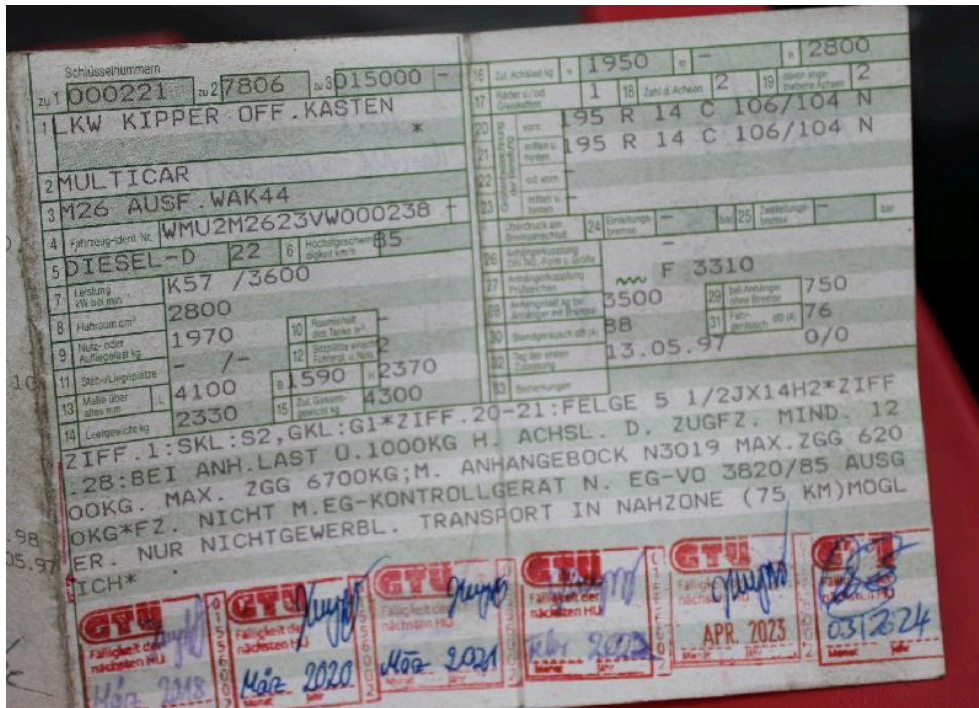 Schlüsselnummern
zu 1 000221 zu 2 7806 zu 3 015000 -
1 LKW KIPPER OFF.KASTEN
*
2 MULTICAR
3 M26 AUSF.WAK44
4 Fahrzeug-Ident. Nr. WMU2M2623VW000238 -
5 DIESEL-D 22 6 Höchstgeschwindigkeit km/h 85
7 Leistung kW bei min K57 /3600
8 Hubraum cm³ 2800
9 Nutz- oder Aufliegelast kg 1970 10 Rauminhalt des Tanks m³ -
11 Steh-/Liegeplätze - /- 12 2
13 Maße über alles mm L 4100 B 1590 H 2370
14 Leergewicht kg 2330 15 Zul. Gesamtgewicht kg 4300
16 Zul. Achslast kg v 1950 m - h 2800
17 Räder u./od. Gleisketten 1 18 Zahl d. Achsen 2 19 davon angetriebene Achsen 2
20 vorn 195 R 14 C 106/104 N
21 mitten u. hinten 195 R 14 C 106/104 N
22 od. vorn -
23 mitten u. hinten -
Überdruck am Bremsanschluß 24 Einleitungsbremse - bar 25 Zweileitungsbremse - bar
26 Anhängerkupplung DIN 740.., Form u. Größe -
27 Anhängerkupplung Prüfzeichen F 3310
28 Anhängelast kg bei Anhänger mit Bremse 3500 29 bei Anhänger ohne Bremse 750
30 Standgeräusch dB (A) 88 31 Fahrgeräusch dB (A) 76
32 Tag der ersten Zulassung 13.05.97 0/0
33 Bemerkungen
ZIFF.1:SKL:S2,GKL:G1*ZIFF.20-21:FELGE 5 1/2JX14H2*ZIFF
.28:BEI ANH.LAST U.1000KG H. ACHSL. D. ZUGFZ. MIND. 12
00KG. MAX. ZGG 6700KG;M. ANHANGEBOCK N3019 MAX.ZGG 620
0KG*FZ. NICHT M.EG-KONTROLLGERAT N. EG-VO 3820/85 AUSG
ER. NUR NICHTGEWERBL. TRANSPORT IN NAHZONE (75 KM)MOGL
ICH*
GTÜ GTÜ GTÜ GTÜ GTÜ
Fälligkeit der nächsten HU
März 2018 März 2020 März 2021 Febr 2022 APR. 2023 03/2024
Monat Jahr